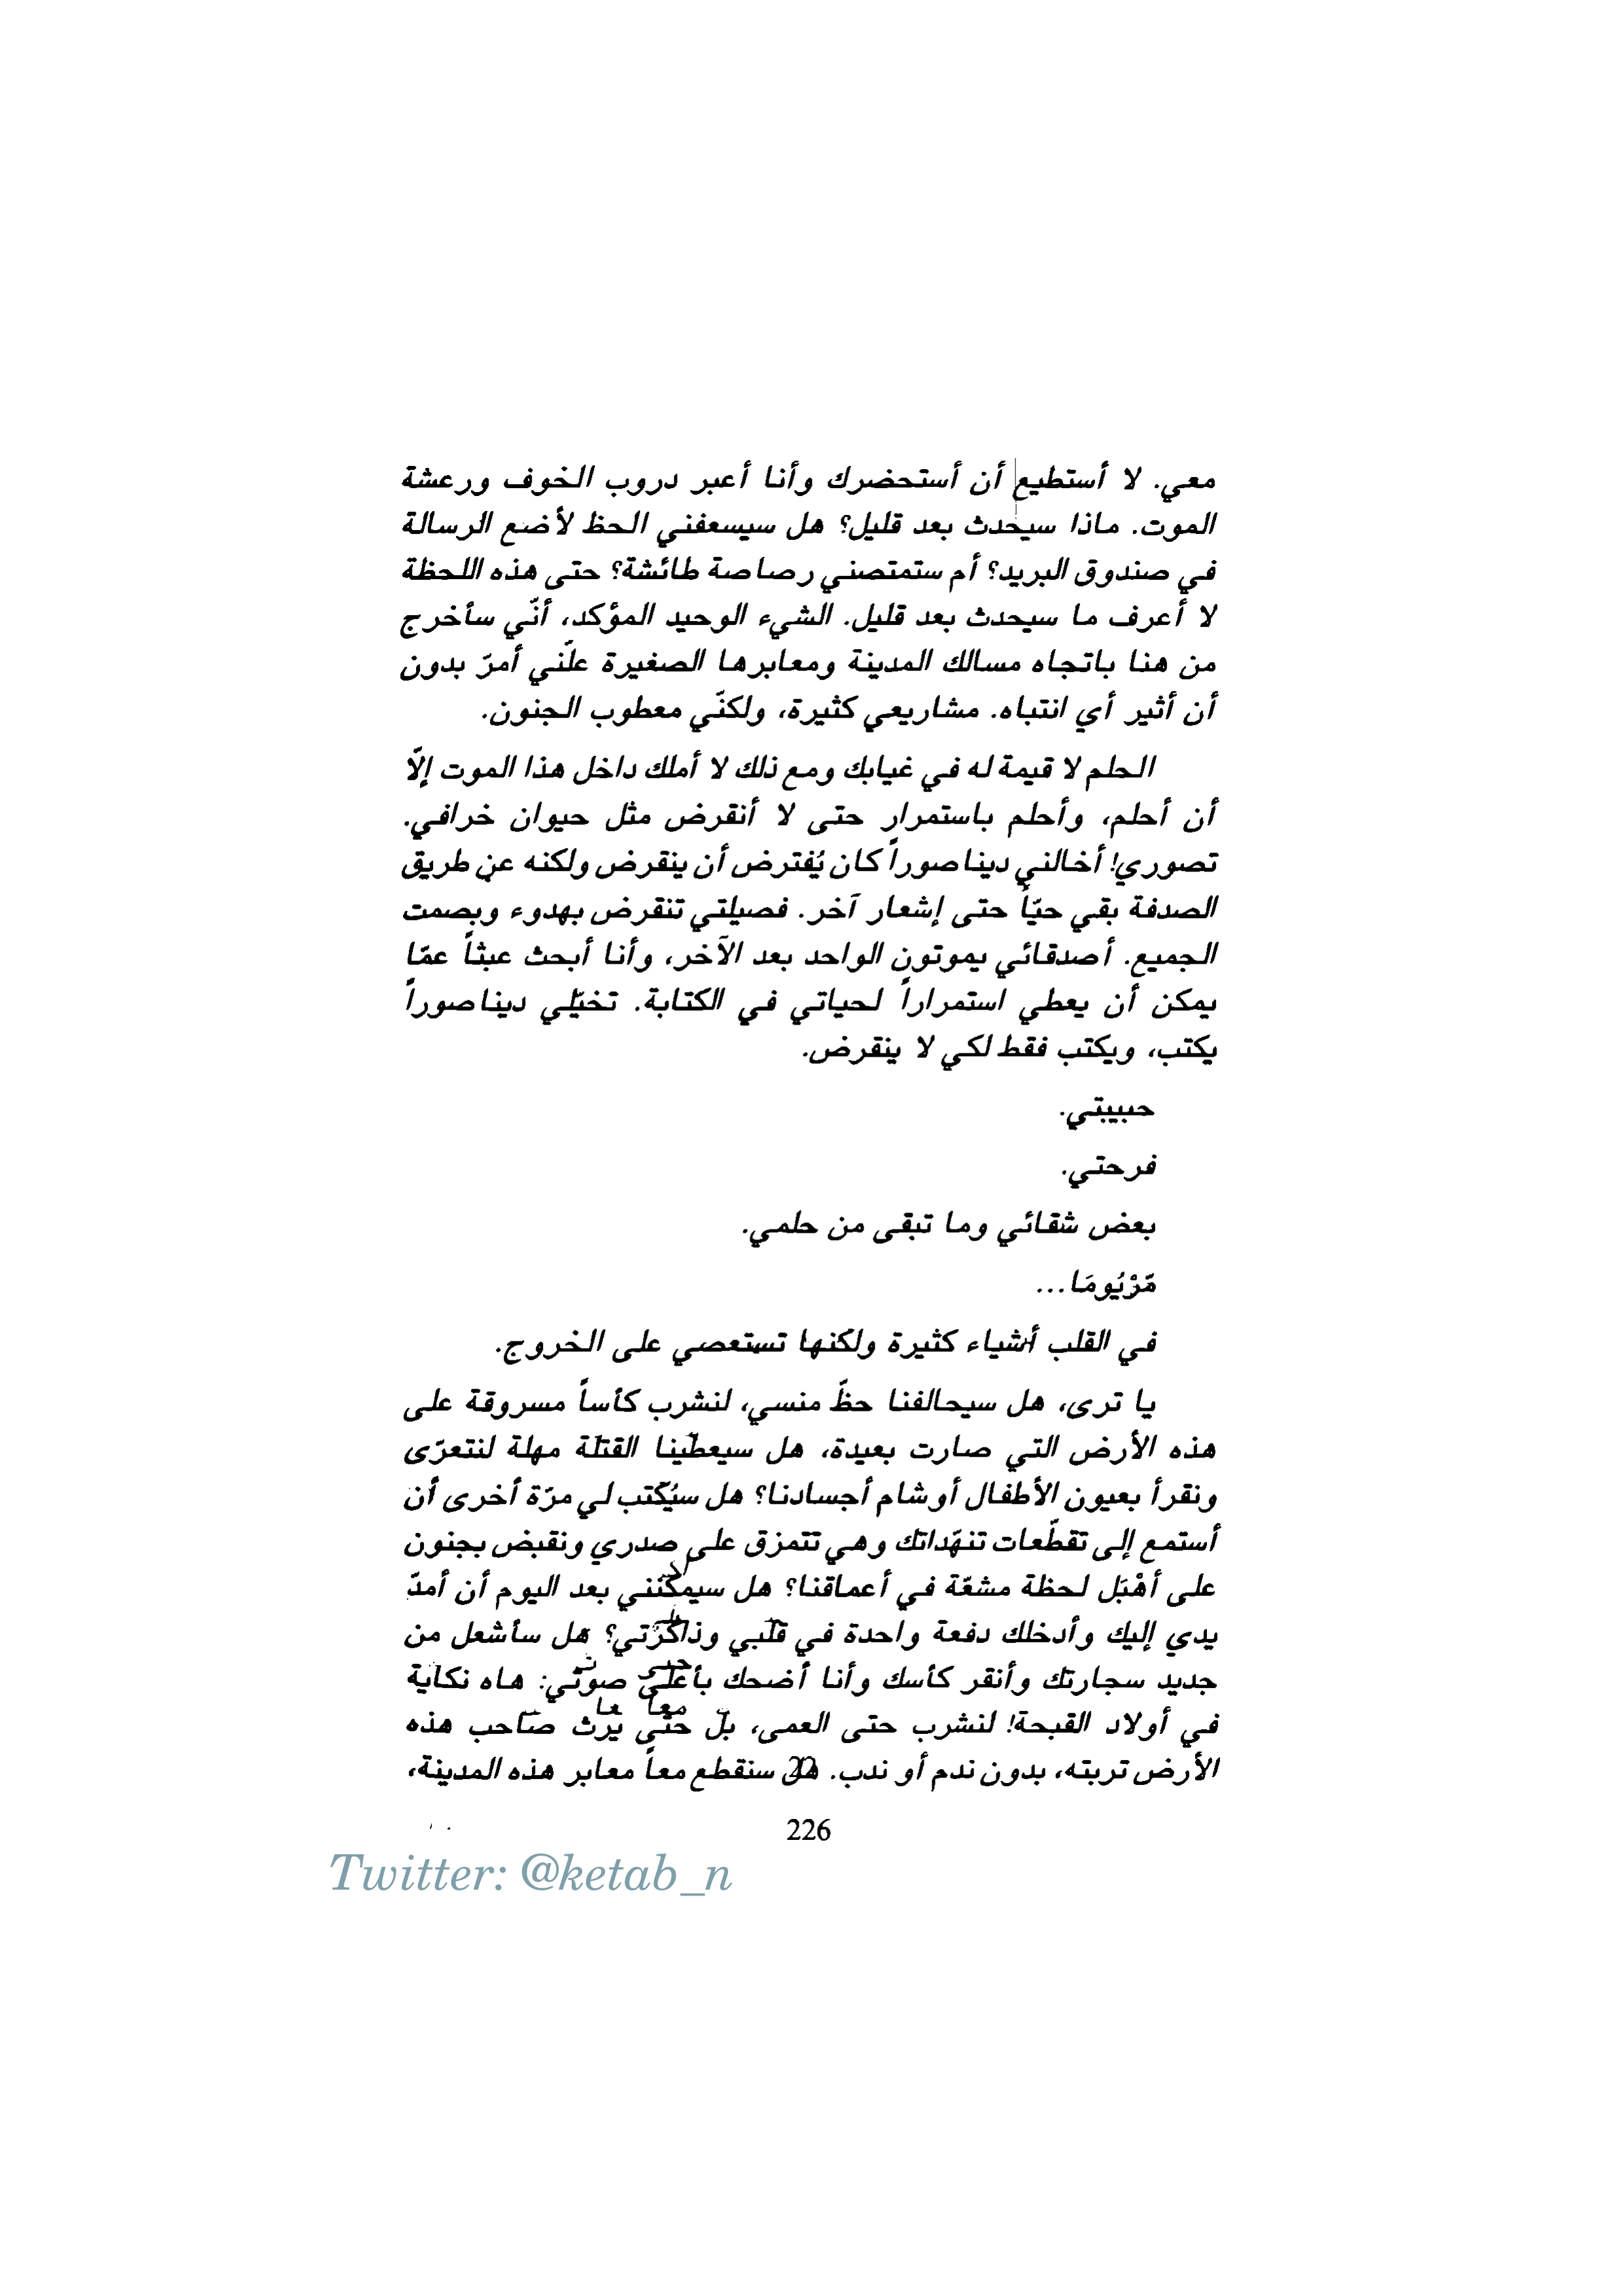 معي. لا أستطيع أن أستحضرك وأنا أعبر دروب الخوف ورعشة
الموت. ماذا سيحدث بعد قليل؟ هل سيسعفني الحظ لأضع الرسالة
في صندوق البريد؟ أم ستمتصني رصاصة طائشة؟ حتى هذه اللحظة
لا أعرف ما سيحدث بعد قليل. الشيء الوحيد المؤكد، أنّي سأخرج
من هنا باتجاه مسالك المدينة ومعابرها الصغيرة علّني أمرّ بدون
أن أثير أي انتباه. مشاريعي كثيرة، ولكنّي معطوب الجنون.
الحلم لا قيمة له في غيابك ومع ذلك لا أملك داخل هذا الموت إلّا
أن أحلم، وأحلم باستمرار حتى لا أنقرض مثل حيوان خرافي.
تصوري! أخالني ديناصوراً كان يُفترض أن ينقرض ولكنه عن طريق
الصدفة بقي حيّاً حتى إشعار آخر. فصيلتي تنقرض بهدوء وبصمت
الجميع. أصدقائي يموتون الواحد بعد الآخر، وأنا أبحث عبثاً عمّا
يمكن أن يعطي استمراراً لحياتي في الكتابة. تخيّلي ديناصوراً
يكتب، ويكتب فقط لكي لا ينقرض.
حبيبتي.
فرحتي.
بعض شقائي وما تبقى من حلمي.
مّرْيُومَا...
في القلب أشياء كثيرة ولكنها تستعصي على الخروج.
يا ترى، هل سيحالفنا حظّ منسي، لنشرب كأساً مسروقة على
هذه الأرض التي صارت بعيدة، هل سيعطينا القتلة مهلة لنتعرّى
ونقرأ بعيون الأطفال أوشام أجسادنا؟ هل سيُكتب لي مرّة أخرى أن
أستمع إلى تقطّعات تنهّداتك وهي تتمزق على صدري ونقبض بجنون
على أهْبَل لحظة مشعّة في أعماقنا؟ هل سيمكنني بعد اليوم أن أمدّ
يدي إليك وأدخلك دفعة واحدة في قلبي وذاكرتي؟ هل سأشعل من
جديد سجارتك وأنقر كأسك وأنا أضحك بأعلى صوتي: هاه نكاية
في أولاد القبحة! لنشرب حتى العمى، بل حتى يرث صاحب هذه
الأرض تربته، بدون ندم أو ندب. هل سنقطع معاً معابر هذه المدينة،
226
Twitter: @ketab_n